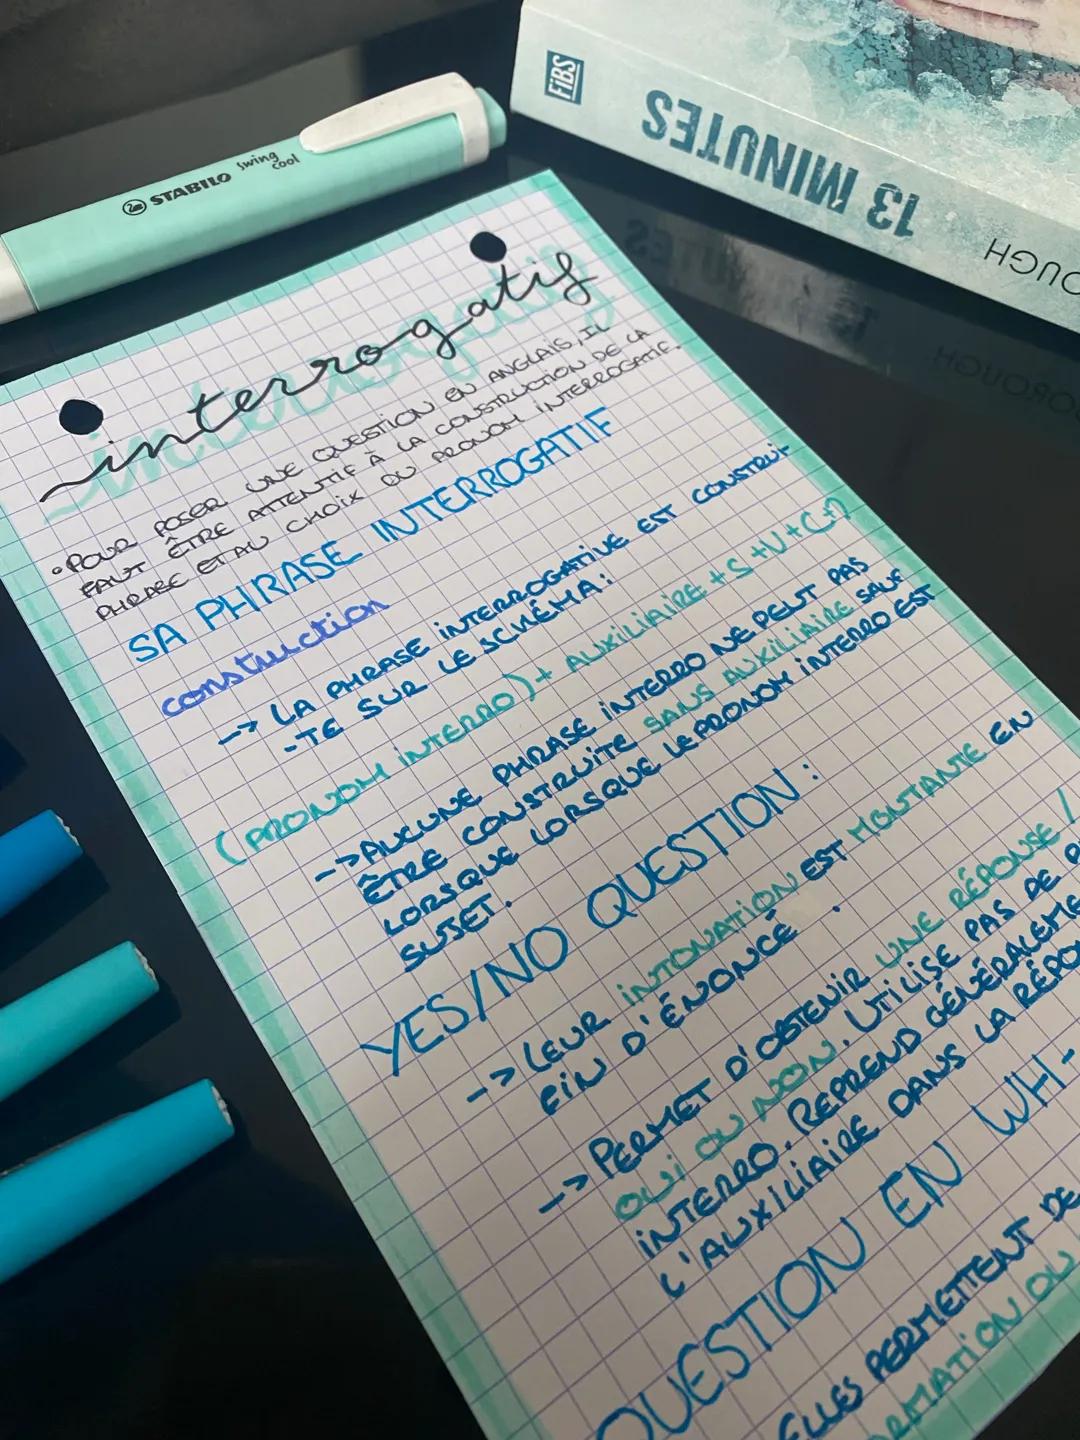 FIBS
13 MINUTES
STABILO swing cool
interrogatif
• POUR POSER UNE QUESTION EN ANGLAIS, IL
FAUT ÊTRE ATTENTIF À LA CONSTRUCTION DE LA
PHRASE ET AU CHOIX DU PRONOM INTERROGATIF.
SA PHRASE INTERROGATIF
construction
-> LA PHRASE INTERROGATIVE EST CONSTRUI-
-TE SUR LE SCHÉMA:
(PRONOM INTERRO) + AUXILIAIRE + S + V + C + ?
-> AUCUNE PHRASE INTERRO NE PEUT PAS
ÊTRE CONSTRUITE SANS AUXILIAIRE SAUF
LORSQUE LORSQUE LE PRONOM INTERRO EST
SUJET.
YES/NO QUESTION :
-> LEUR INTONATION EST MONTANTE EN
FIN D'ÉNONCÉ.
-> PERMET D'OBTENIR UNE RÉPONSE /
OUI OU NON. UTILISE PAS DE
INTERRO. REPREND GÉNÉRALEME
L'AUXILIAIRE DANS LA RÉPO
QUESTION EN WH-
ELLES PERMETTENT DE
ORMATION OU